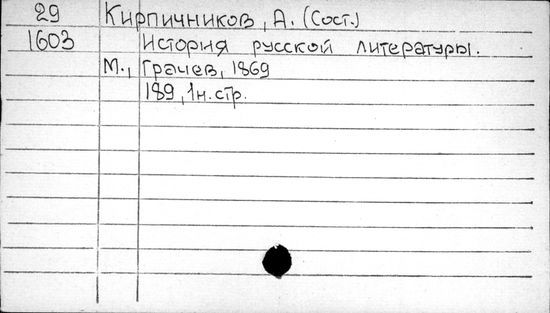 29 Кирпичников, А. (Сост.)
1603 История русской литературы.
М., Грачев, 1869
189, 1н. стр.